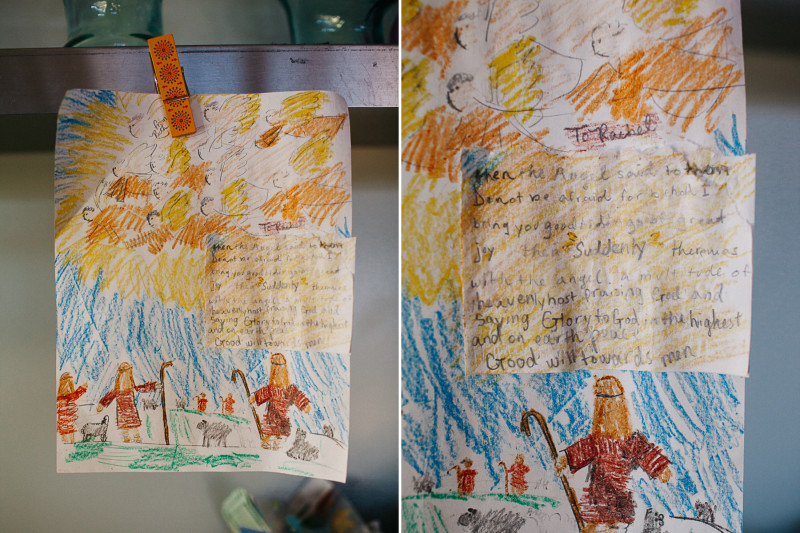 To Rachel
then the Angel said to them
Do not be afraid for behold I
bring you good tidings of great
joy then "Suddenly" there was
with the angel A multitude of
heavenly host Praising God and
saying Glory to God in the highest
and on earth peace
Good will towards men